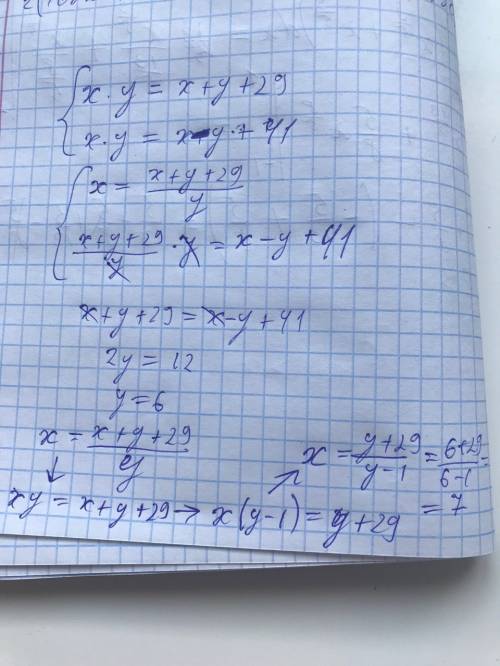 x·y = x+y+29
x·y = x-y+41
x = (x+y+29)/y
(x+y+29)/y · y = x-y+41
x+y+29 = x-y+41
2y = 12
y = 6
x = (x+y+29)/y
↓
xy = x+y+29 → x(y-1) = y+29
↗
x = (y+29)/(y-1) = (6+29)/(6-1) =
= 7